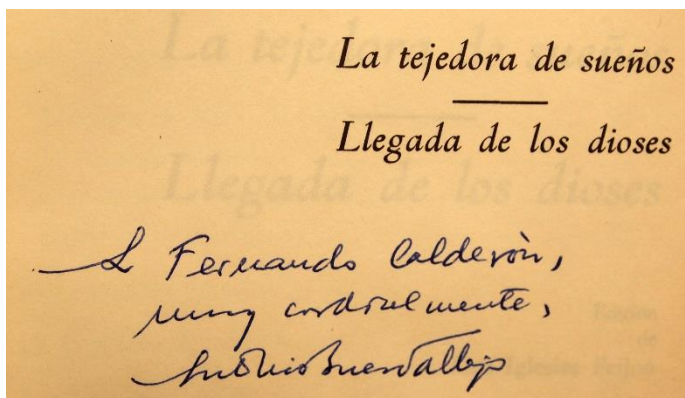 La tejedora de sueños
Llegada de los dioses
A Fernando Calderón,
muy cordialmente,
Antonio Buero Vallejo